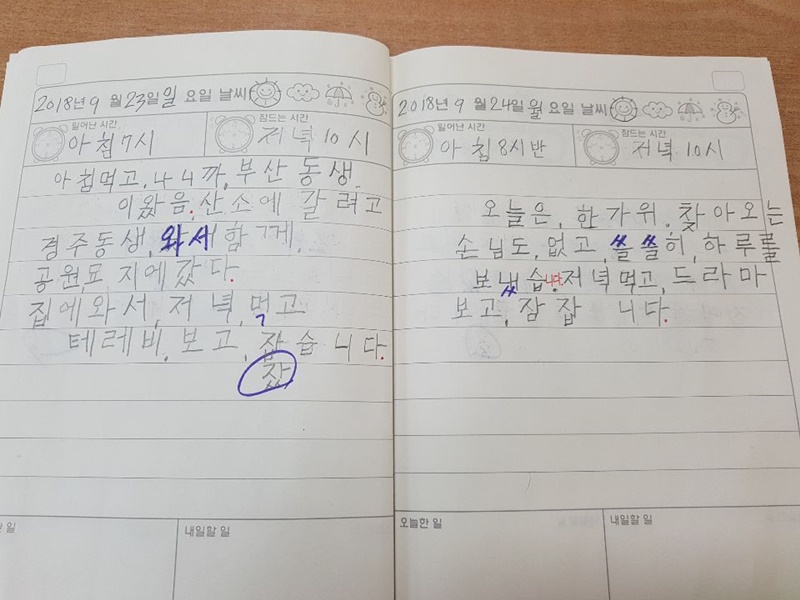 2018년 9월 23일 일요일 날씨
일어난 시간 아침 7시
잠드는 시간 저녁 10시
아침먹고, 나니까, 부산동생
이왔음. 산소에 갈려고
경주동생, 와서 함께,
공원묘지에 갔다.
집에와서, 저녁, 먹고
테레비, 보고, 잡습니다.
잤
일 내일할 일
2018년 9월 24일 월요일 날씨
일어난 시간 아침 8시반
잠드는 시간 저녁 10시
오늘은, 한가위, 찾아오는
손님도, 없고, 쓸쓸히, 하루를
보냈습니다. 저녁먹고, 드라마
보고, 잠잡니다.
오늘한 일 내일할 일